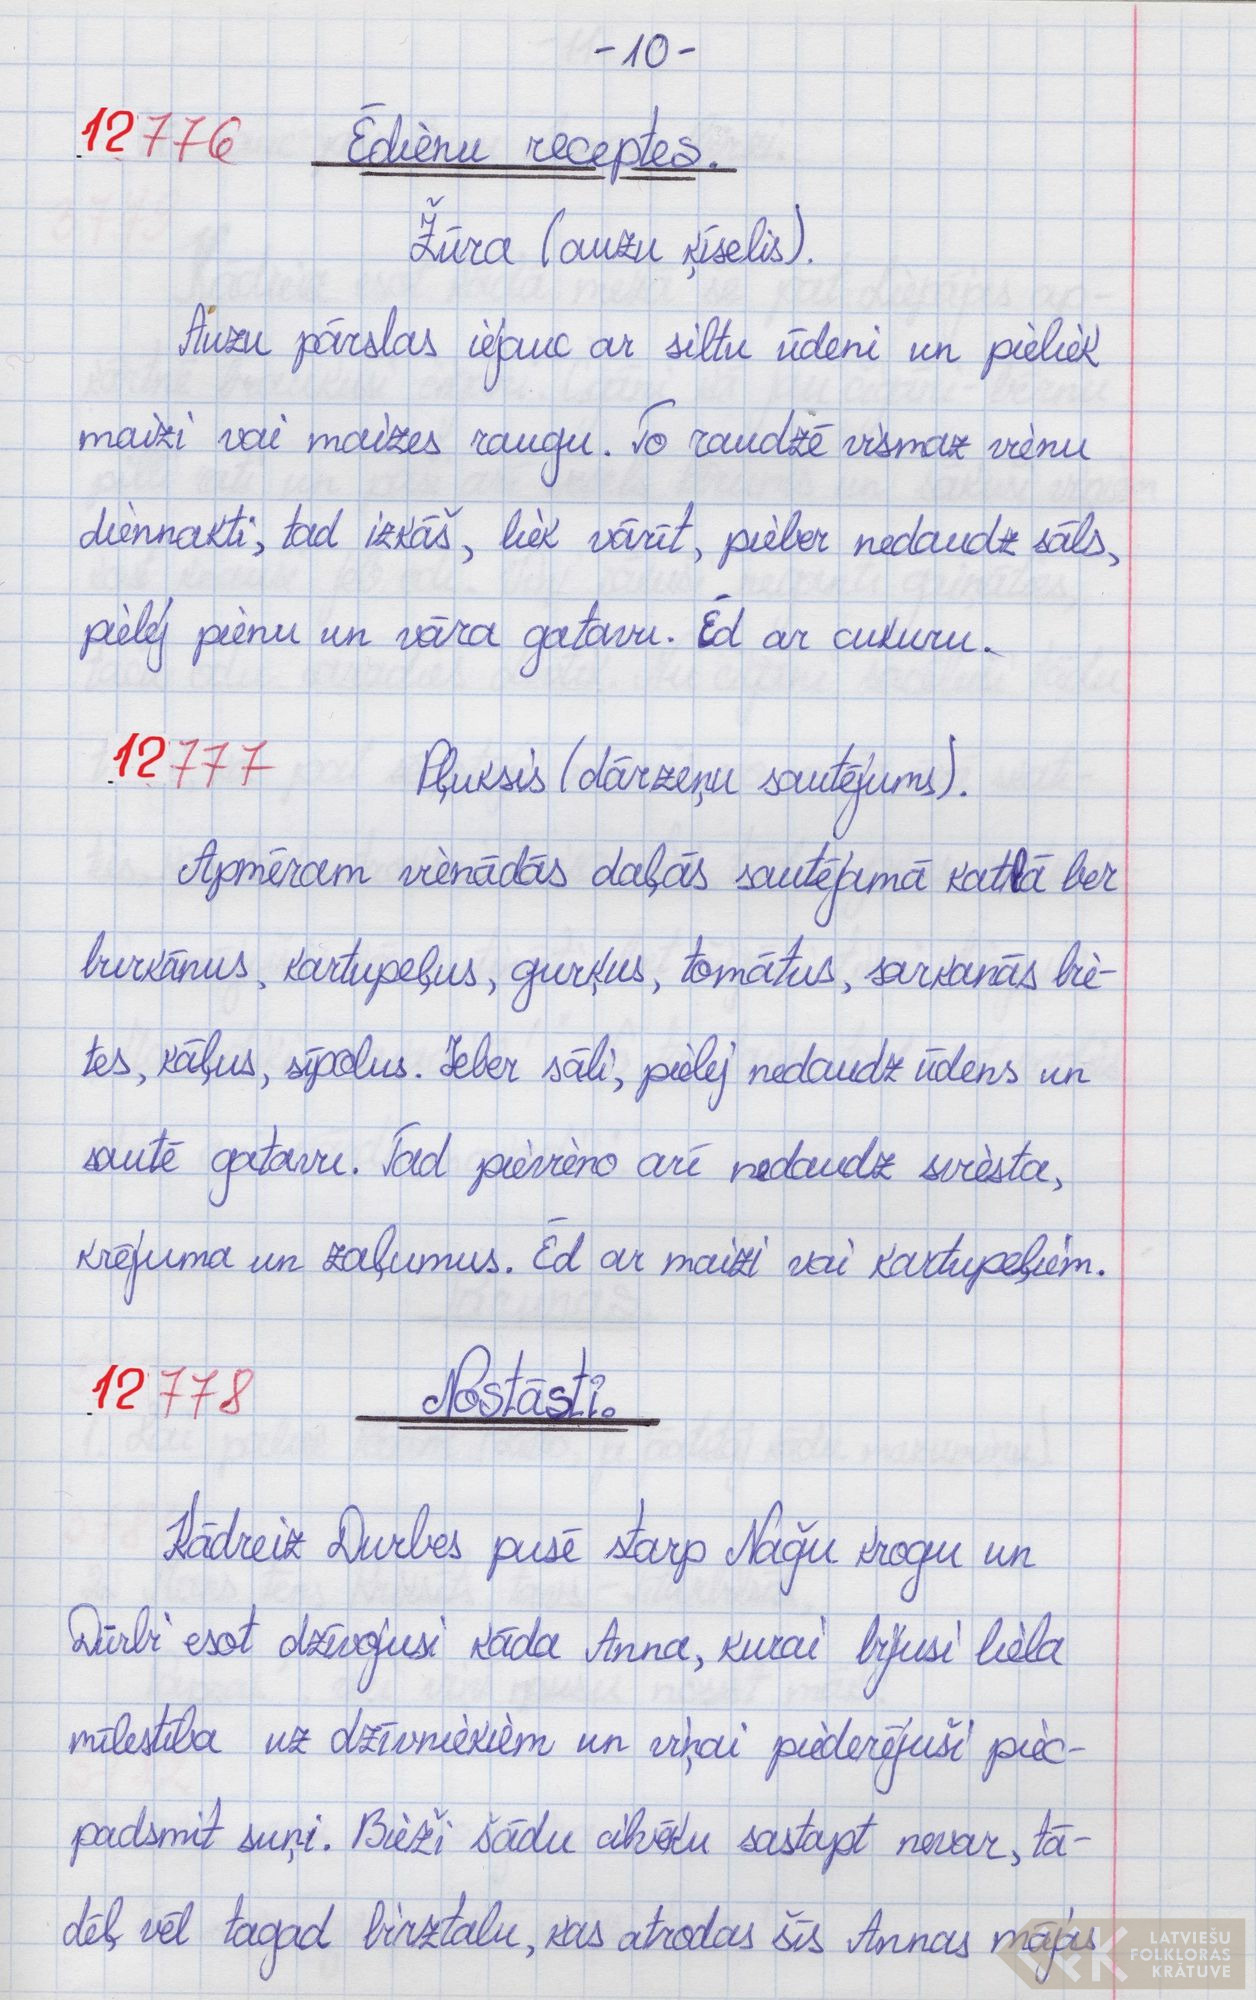 -10-
12776 Ēdienu receptes.
Žūra (auzu ķīselis).
Auzu pārslas iejauc ar siltu ūdeni un pieliek
maizi vai maizes raugu. To raudzē vismaz vienu
diennakti, tad izkāš, liek vārīt, pieber nedaudz sāls,
pielej pienu un vāra gatavu. Ēd ar cukuru.
12777 Pļuksis (dārzeņu sautējums).
Apmēram vienādās daļās sautējamā katlā ber
burkānus, kartupeļus, gurķus, tomātus, sarkanās bie-
tes, kāļus, sīpolus. Ieber sāli, pielej nedaudz ūdens un
sautē gatavu. Tad pievieno arī nedaudz sviesta,
krējuma un zaļumus. Ēd ar maizi vai kartupeļiem.
12778 Nostāsti.
Kādreiz Durbes pusē starp Naģu krogu un
Dūrbi esot dzīvojusi kāda Anna, kurai bijusi liela
mīlestība uz dzīvniekiem un viņai piederējuši piec-
padsmit suņi. Bieži šādu cilvēku sastapt nevar, tā-
dēļ vēl tagad birztalu, kas atrodas šīs Annas mājas
LATVIEŠU
FOLKLORAS
KRĀTUVE